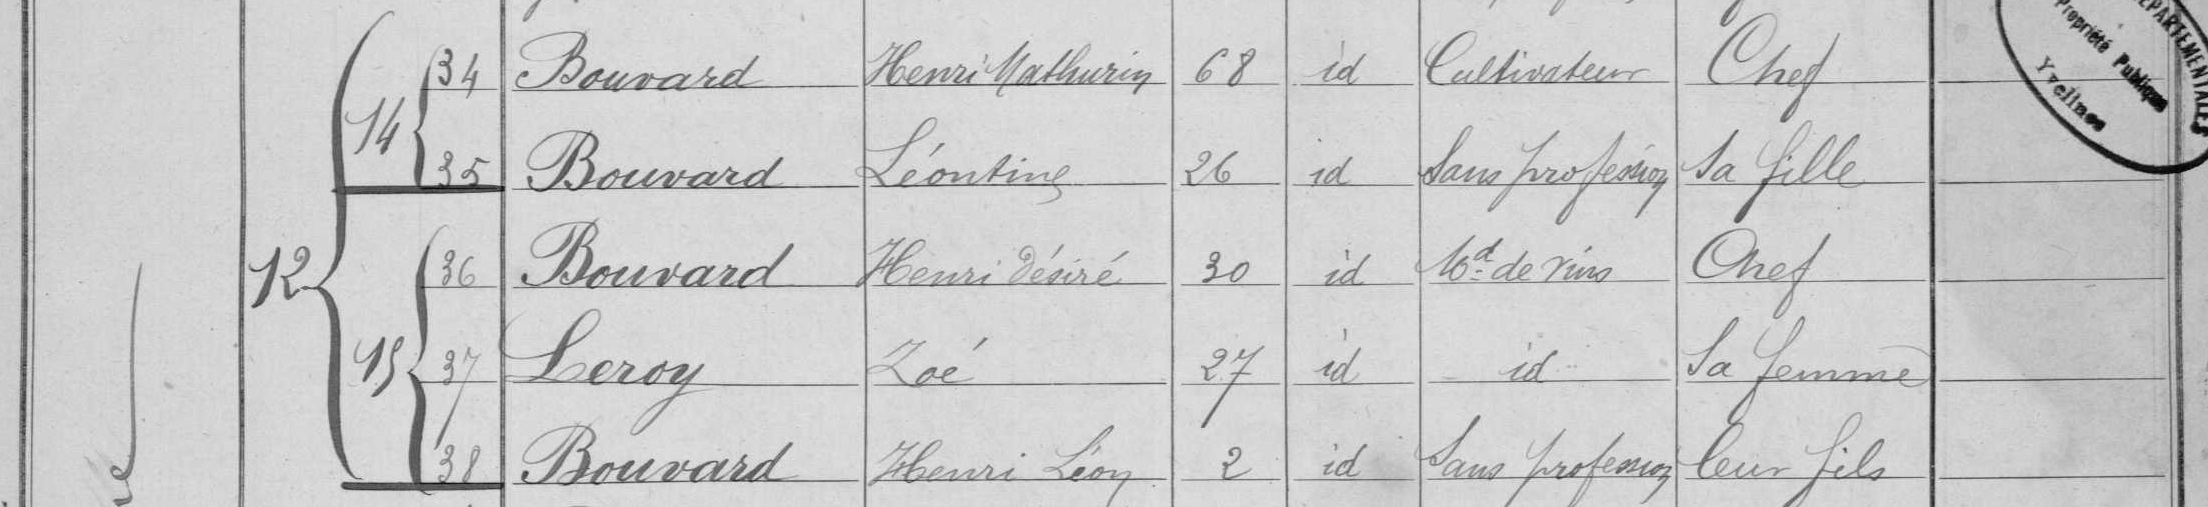 34 Bouvard Henri Mathurin 68 id Cultivateur Chef
14
35 Bouvard Léontine 26 id Sans profession Sa fille
12
36 Bouvard Henri Désiré 30 id Md de vins Chef
15
37 Leroy Zoé 27 id id Sa femme
38 Bouvard Henri Léon 2 id Sans profession leur fils
DÉPARTEMENTALES
Propriété Publique
Yvelines